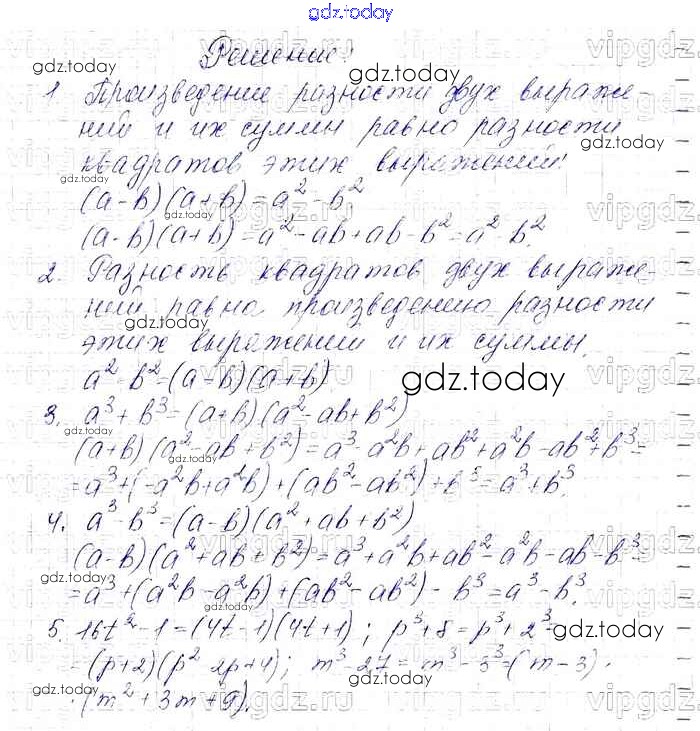 gdz.today
Решение:
1 Произведение разности двух выраже-
ний и их суммы равно разности
квадратов этих выражений!
(a-b)(a+b)=a²-b²
(a-b)(a+b)=a²-ab+ab-b²=a²-b².
2. Разность квадратов двух выраже-
ний равна произведению разности
этих выражений и их суммы.
a²-b²=(a-b)(a+b)
3. a³+b³=(a+b)(a²-ab+b²)
(a+b)(a²-ab+b²)=a³-a²b+ab²+a²b-ab²+b³=
=a³+(-a²b+a²b)+(ab²-ab²)+b³=a³+b³.
4. a³-b³=(a-b)(a²+ab+b²)
(a-b)(a²+ab+b²)=a³+a²b+ab²-a²b-ab-b³=
=a³+(a²b-a²b)+(ab²-ab²)-b³=a³-b³.
5. 16t²-1=(4t-1)(4t+1); p³+8=p³+2³=
=(p+2)(p²-2p+4); m³-27=m³-3³=(m-3)·
·(m²+3m+9).